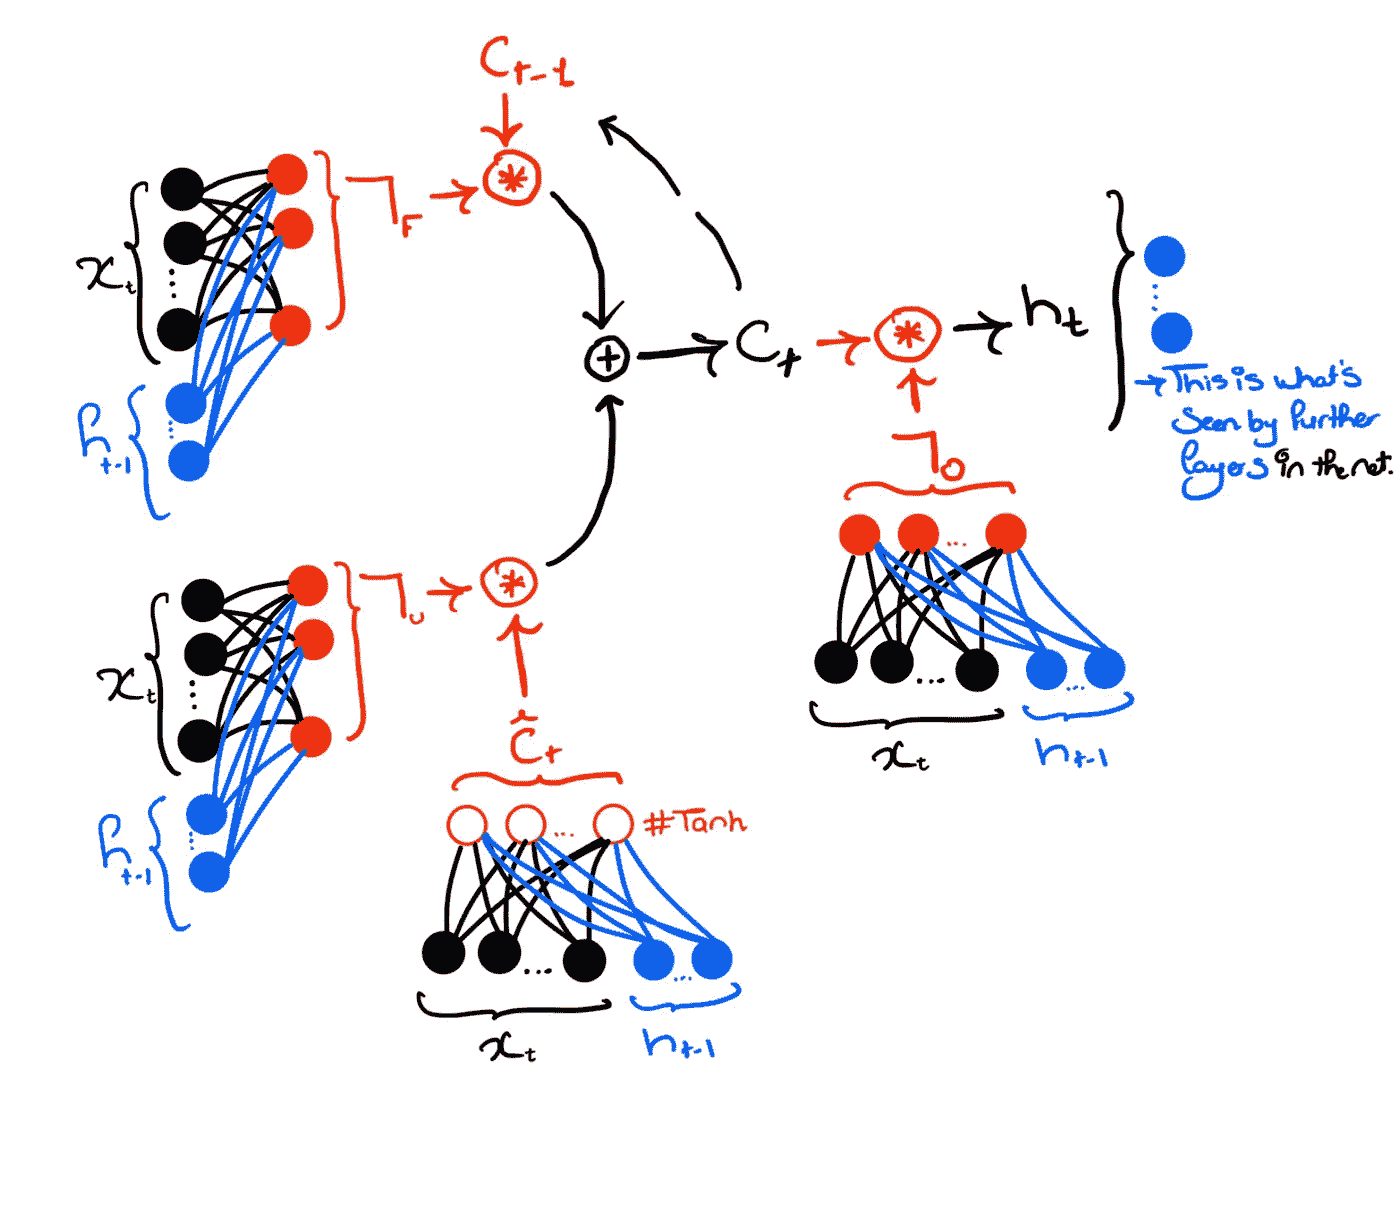 C t-1
x t
h t-1
Γ F
*
+
C t
*
h t
This is what's
seen by further
layers in the net.
Γ o
x t
h t-1
x t
h t-1
Γ u
*
C̃ t
#Tanh
x t
h t-1